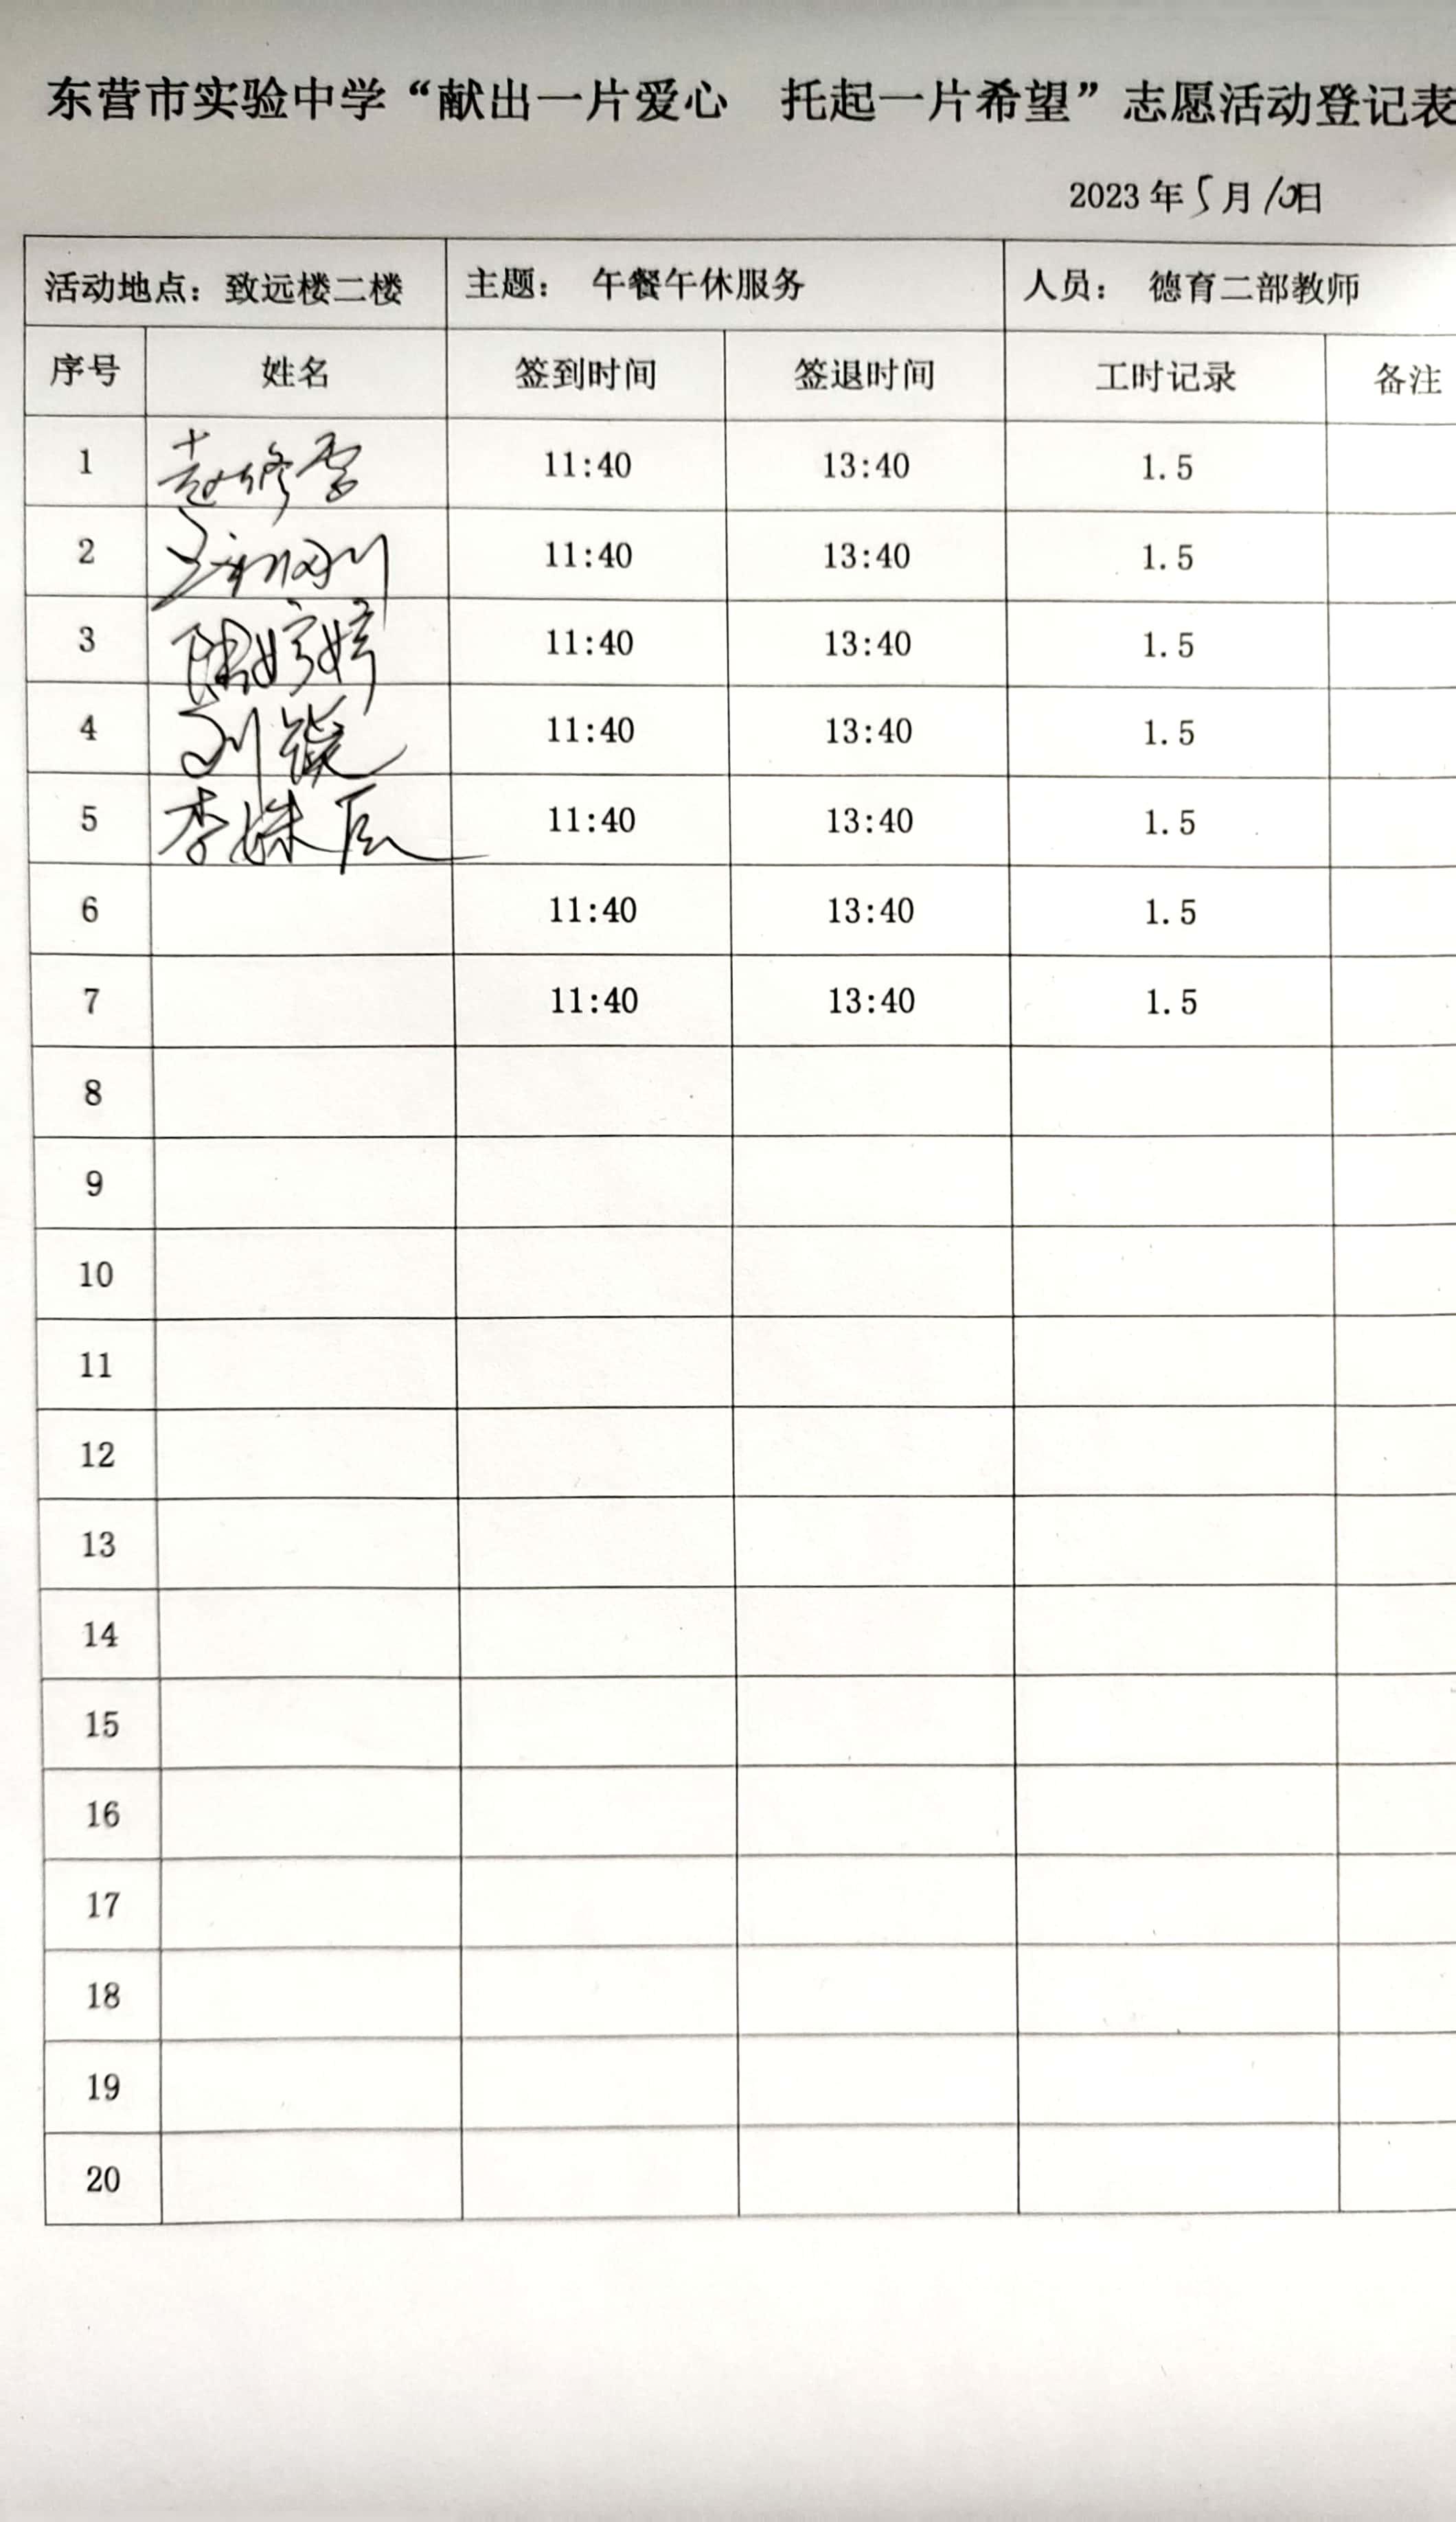 东营市实验中学“献出一片爱心 托起一片希望”志愿活动登记表
2023年5月10日
活动地点：致远楼二楼 主题： 午餐午休服务 人员： 德育二部教师
序号 姓名 签到时间 签退时间 工时记录 备注
1 赵修雪 11:40 13:40 1.5
2 11:40 13:40 1.5
3 陈婷婷 11:40 13:40 1.5
4 刘 11:40 13:40 1.5
5 李姝辰 11:40 13:40 1.5
6 11:40 13:40 1.5
7 11:40 13:40 1.5
8
9
10
11
12
13
14
15
16
17
18
19
20